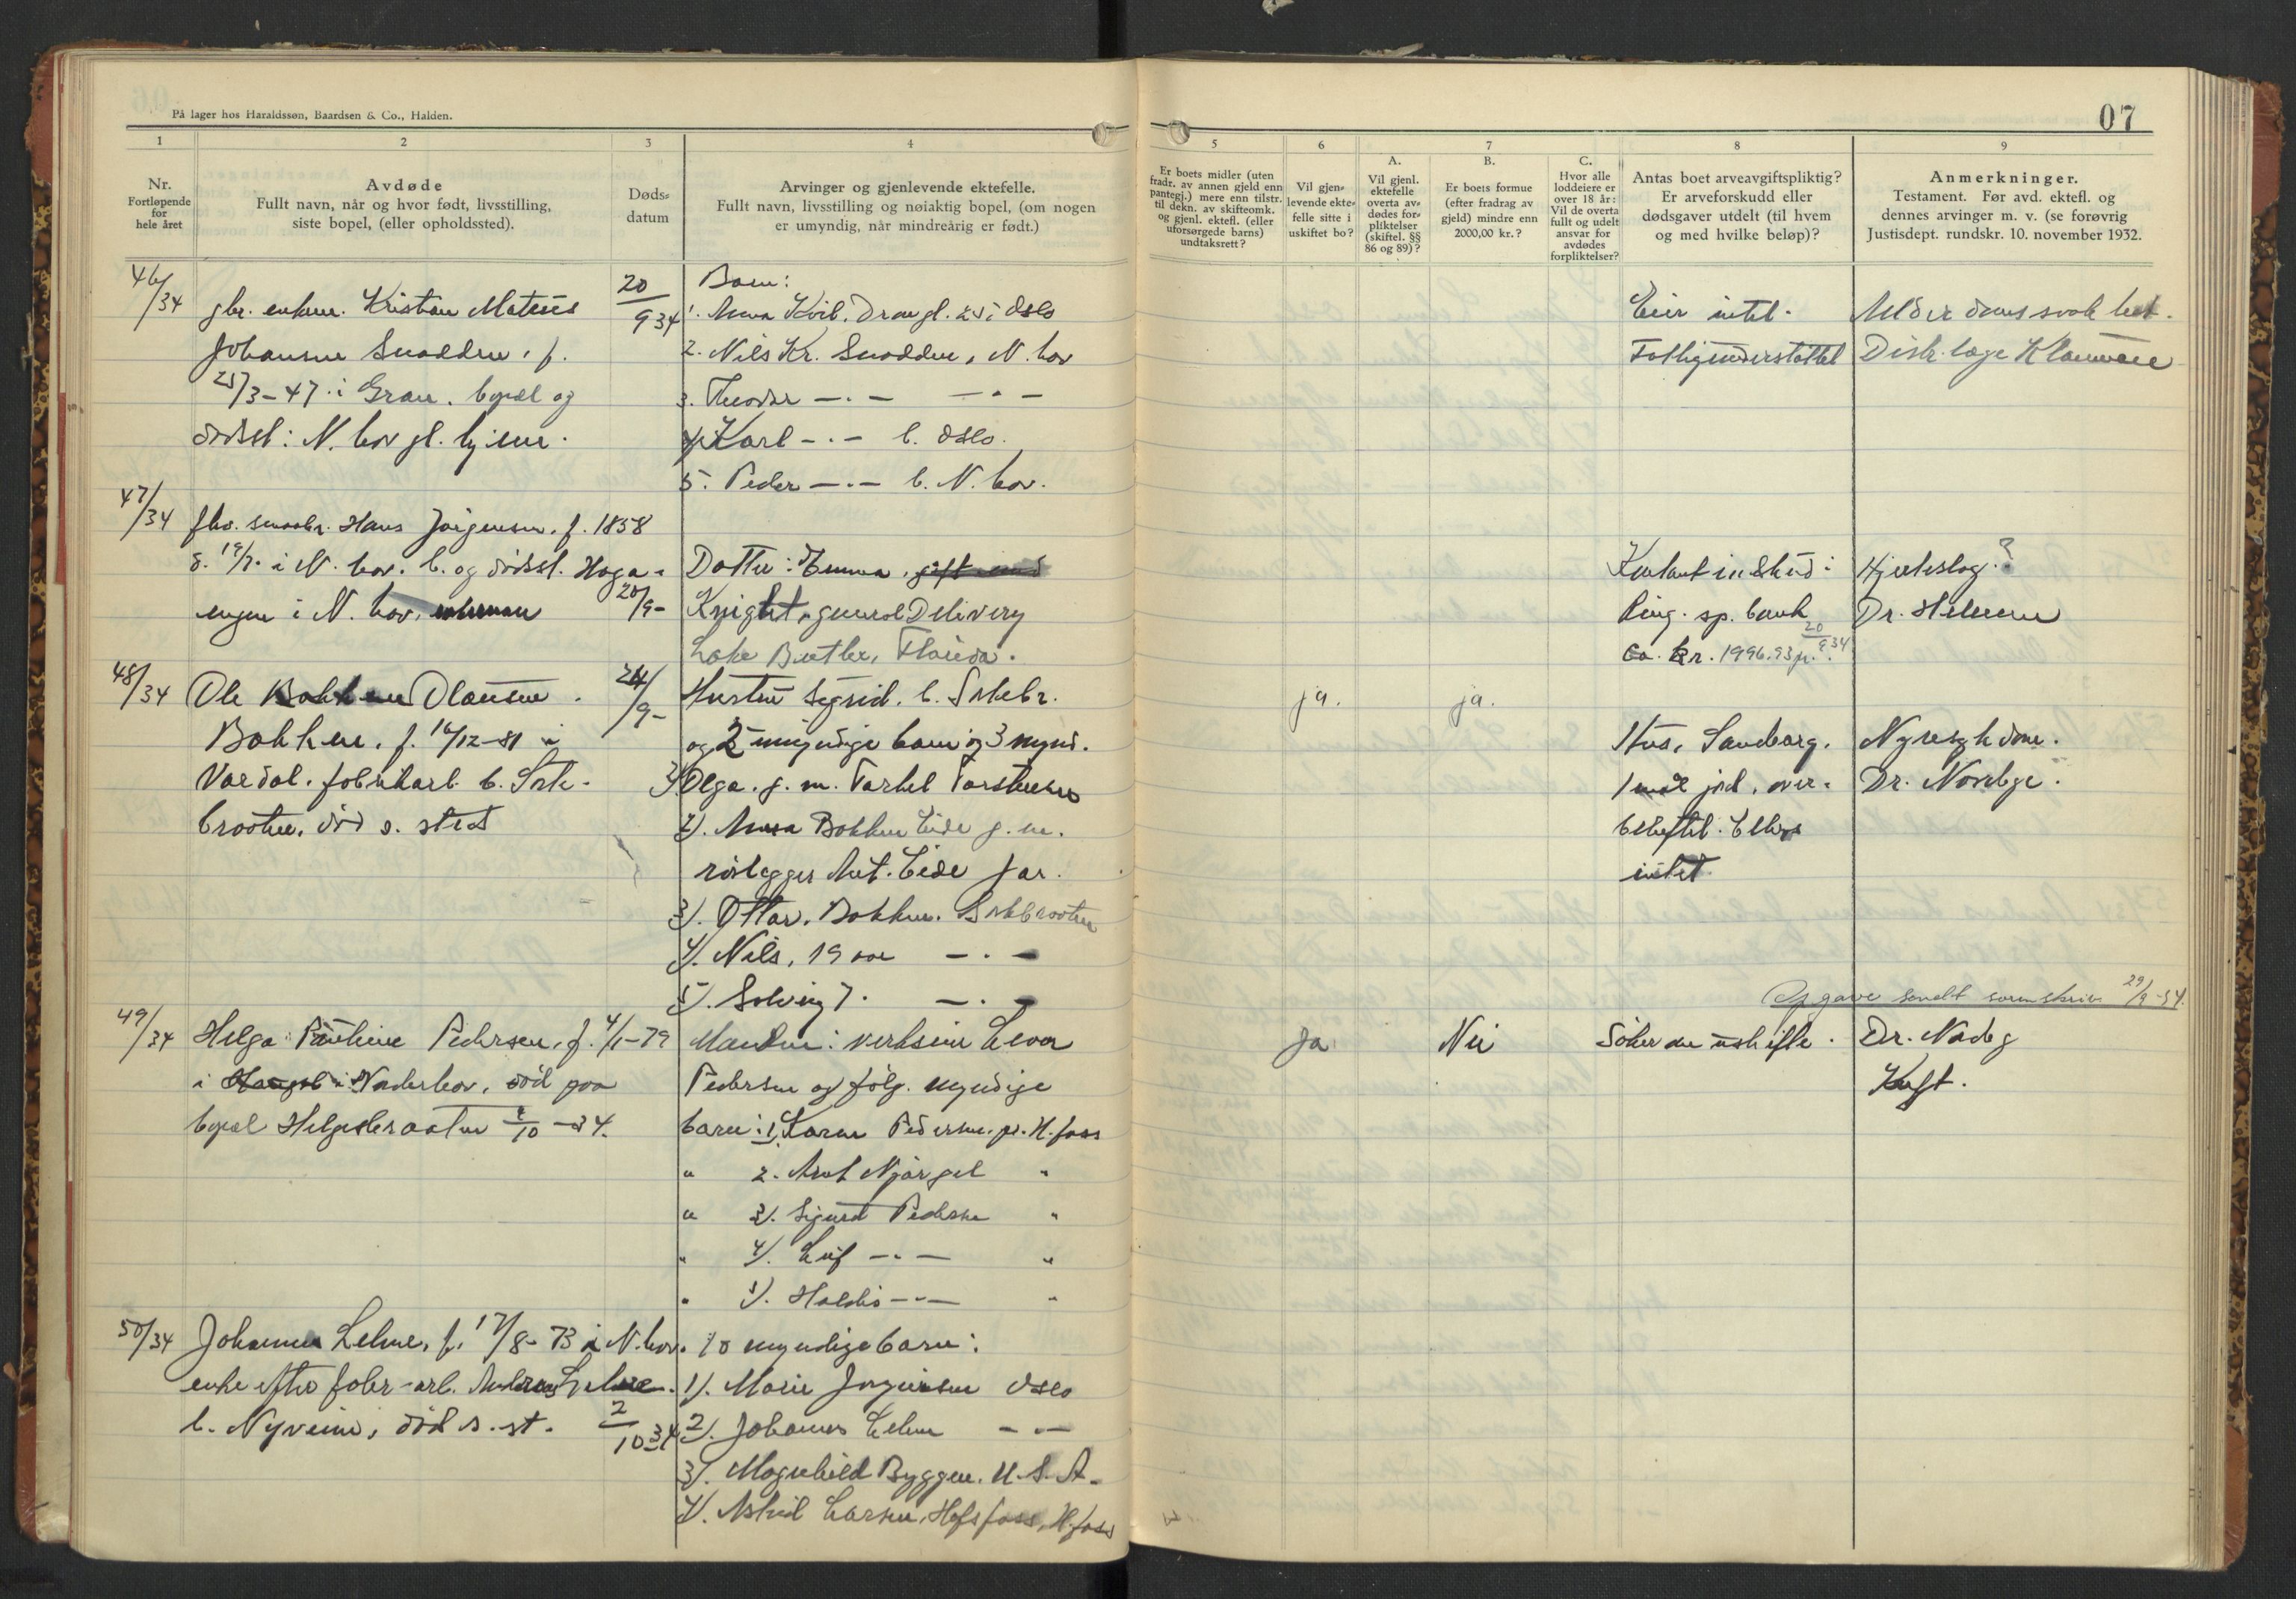 På lager hos Haraldssøn, Baardsen & Co., Halden.
1 2 3 4
Nr.
Fortløpende
for
hele året
Avdøde
Fullt navn, når og hvor født, livsstilling,
siste bopel, (eller opholdssted).
Døds-
datum
Arvinger og gjenlevende ektefelle.
Fullt navn, livsstilling og nøiaktig bopel, (om nogen
er umyndig, når mindreårig er født.)
46/34
gbr. enkem. Kristian Mateus
Johansen Snadden, f.
25/3-47 i Gran. bopæl og
dødsst: N. hov gl. hjem.
20/9 34
Barn:
1. Anna Kvil. Drongl. 25 i Oslo
2. Nils Kr. Snadden, N. hov
3. Theodor -.- -.-
4. Karl -.- b. Oslo.
5. Peder -.- b. N. hov.
47/34
fhv. smaabr. Hans Jørgensen. f. 1858
d. 19/7. i N. hov. b. og dødsst. Haga-
engen i N. hov, enkeman
20/9-
Datter: Emma, gift med
Knight, general Delivery
Lake Butler, Florida.
48/34
Ole Bakken Olausen
Bakken. f. 16/12-81 i
Vardal. fabrikarb. b. Sole-
braaten, død s. sted
24/9-
Hustru Sigrid. b. Solebr.
og 2 umyndige barn og 3 mynd.
1. Olga. g. m. Tarkel Torstensen
2). Anna Bakken Eide g. m.
rørlegger Ant. Eide Jar.
3). Ottar. Bakken. Solebraaten
4). Nils, 19 aar -.-
5). Solveig 7. -.-
49/34
Helga Pauline Pedersen, f. 4/1-79
i Haugsb i Norderhov, død paa
bopæl Helgesbraaten 1/10-34.
Manden: verkseier Evon
Pedersen og følg. myndige
barn: 1, Karen Pedersen. pr. H.foss
" 2. Arnt Njørgel "
" 3). Sigurd Pedersen "
" 4). Leif -.- "
" 5). Haldis -.- "
50/34
Johanna Lelme, f. 17/8-73 i N. hov.
enke efter fabr-arb. Andreas Lelme.
b. Nyveien, død s. st.
2/10 34
10 myndige barn:
1). Marie Jørgensen Oslo
2). Johannes Lelme -.-
3). Magnhild Byggen. U.S.A.
4). Astrid Larsen, Hofsfoss, H.foss
07
5 6 7 8 9
Er boets midler (uten
fradr. av annen gjeld enn
pantegj.) mere enn tilstr.
til dekn. av skifteomk.
og gjenl. ektefl. (eller
uforsørgede barns)
undtaksrett?
Vil gjen-
levende ekte-
felle sitte i
uskiftet bo?
A.
Vil gjenl.
ektefelle
overta av-
dødes for-
pliktelser
(skiftel. §§
86 og 89)?
B.
Er boets formue
(efter fradrag av
gjeld) mindre enn
2000,00 kr.?
C.
Hvor alle
loddeiere er
over 18 år:
Vil de overta
fullt og udelt
ansvar for
avdødes
forpliktelser?
Antas boet arveavgiftspliktig?
Er arveforskudd eller
dødsgaver utdelt (til hvem
og med hvilke beløp)?
Anmerkninger.
Testament. Før avd. ektefl. og
dennes arvinger m. v. (se forøvrig
Justisdept. rundskr. 10. november 1932.
Eier intet.
Fattigunderstøttet
Distr.læge
Kontant inskud i
Ring. sp. bank
ca. kr. 1996.93 pr. 20/9 34
Hjerteslag?
Dr.
ja. ja.
Hus, Sandberg.
1 maal jord, over-
beheftet. Ellers
intet
Nyresykdom.
Dr.
Opgave sendt sorenskriv. 29/9-34.
Ja Nei
Søker om uskifte.
Dr.
Kreft.